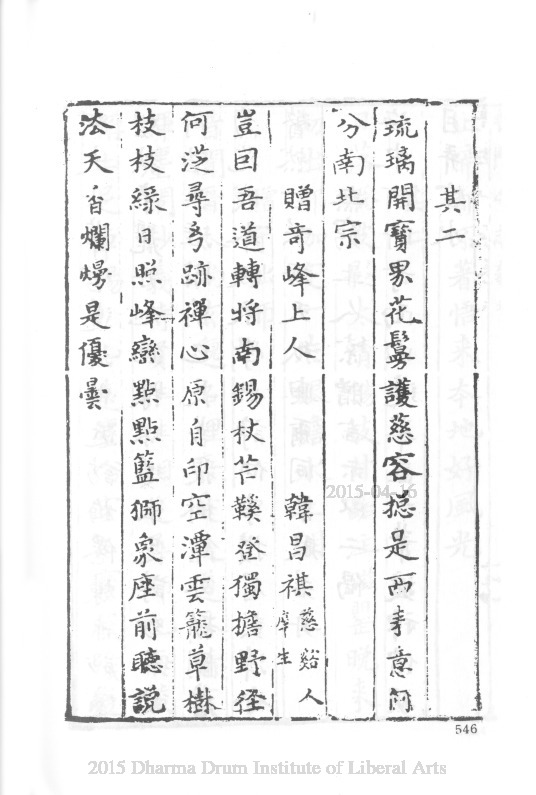 其二
琉璃開寶界花鬘護慈容揔是西來意何
分南北宗
贈奇峰上人 韓昌祺慈谿人庠生
豈曰吾道轉將南錫杖芒鞋登獨擔野徑
何從尋鳥跡禪心原自印空潭雲籠草樹
枝枝綠日照峰巒點點藍獅象座前聽說
法天香爛熳是優曇
2015-04-16
546
2015 Dharma Drum Institute of Liberal Arts